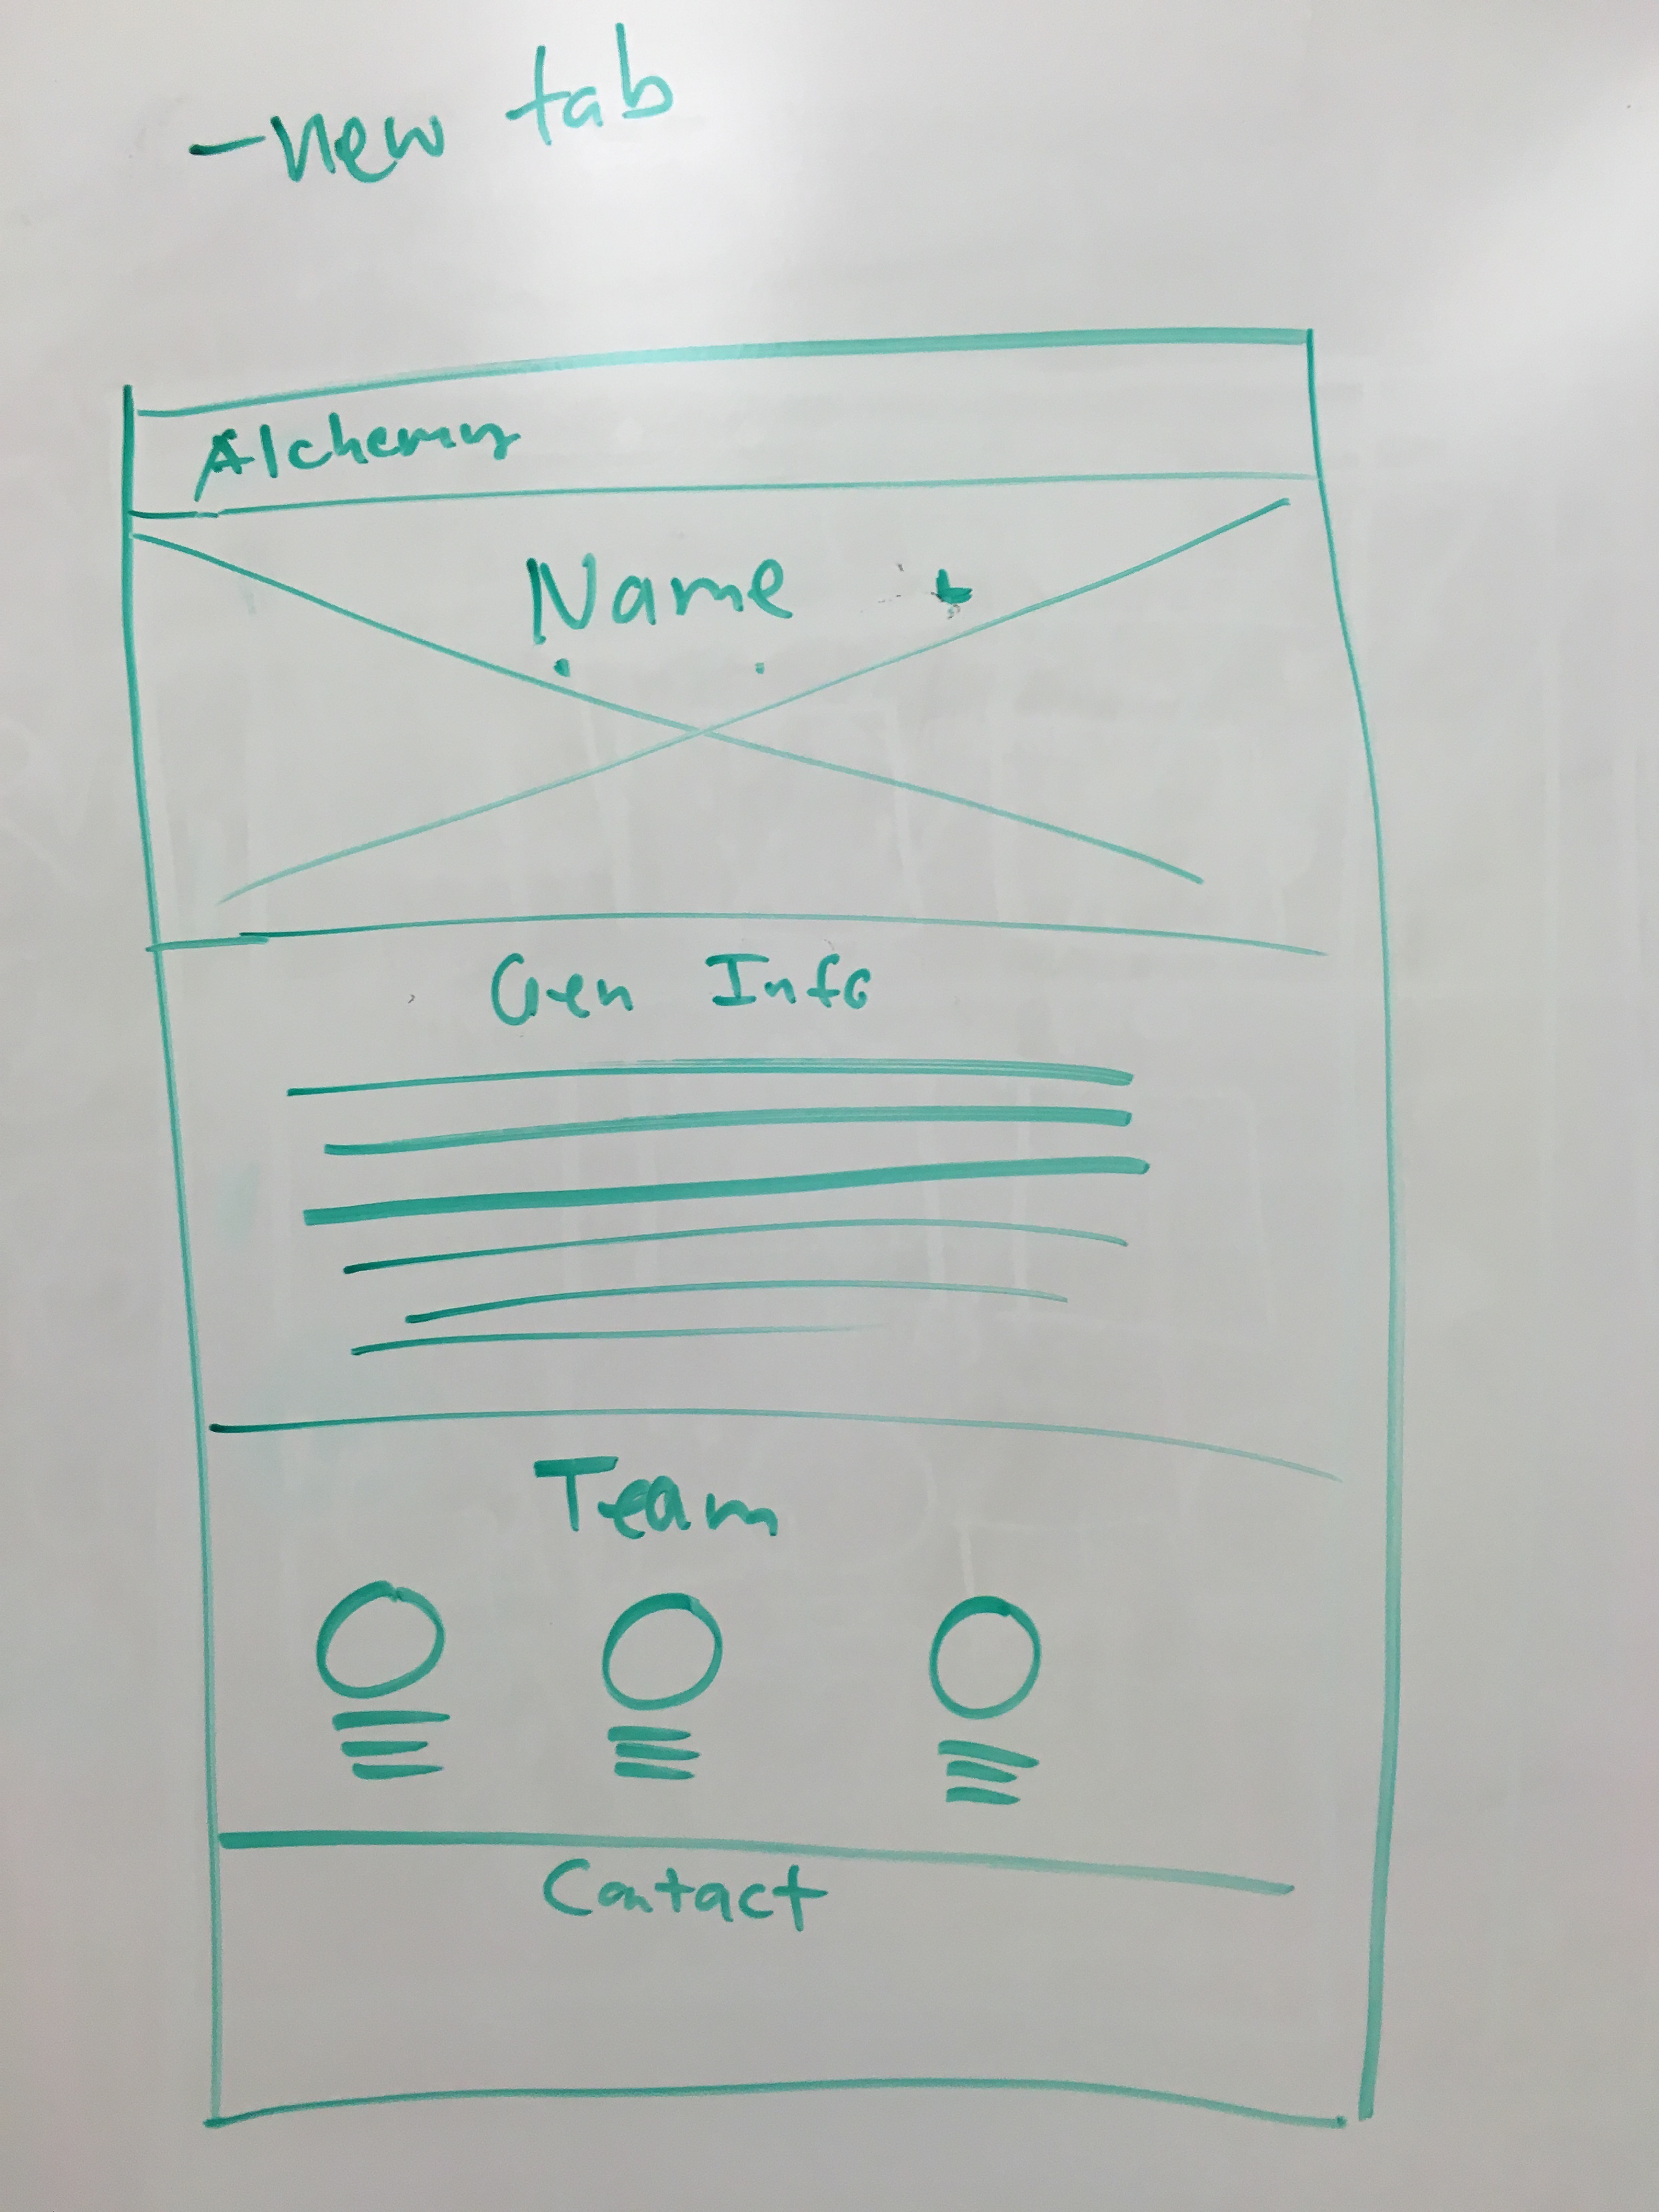 - new tab
Alchemy
Name
Gen Info
Team
Contact